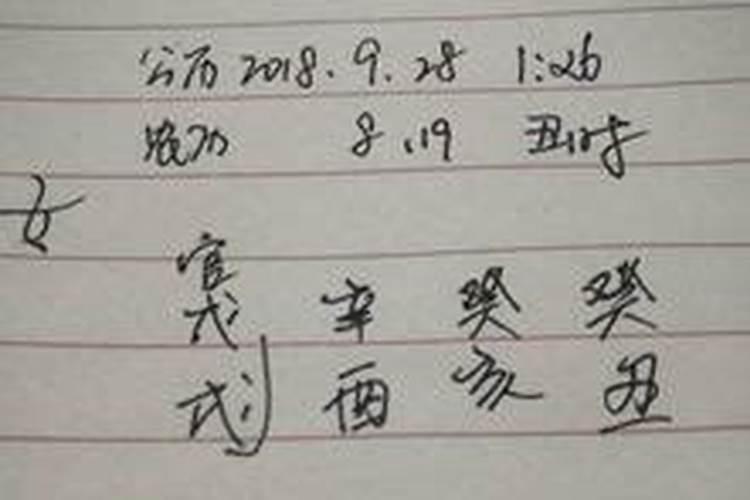 公历 2018.9.28 1:26
农历 8.19 丑时
女
官
戊 辛 癸 癸
戌 酉 亥 丑